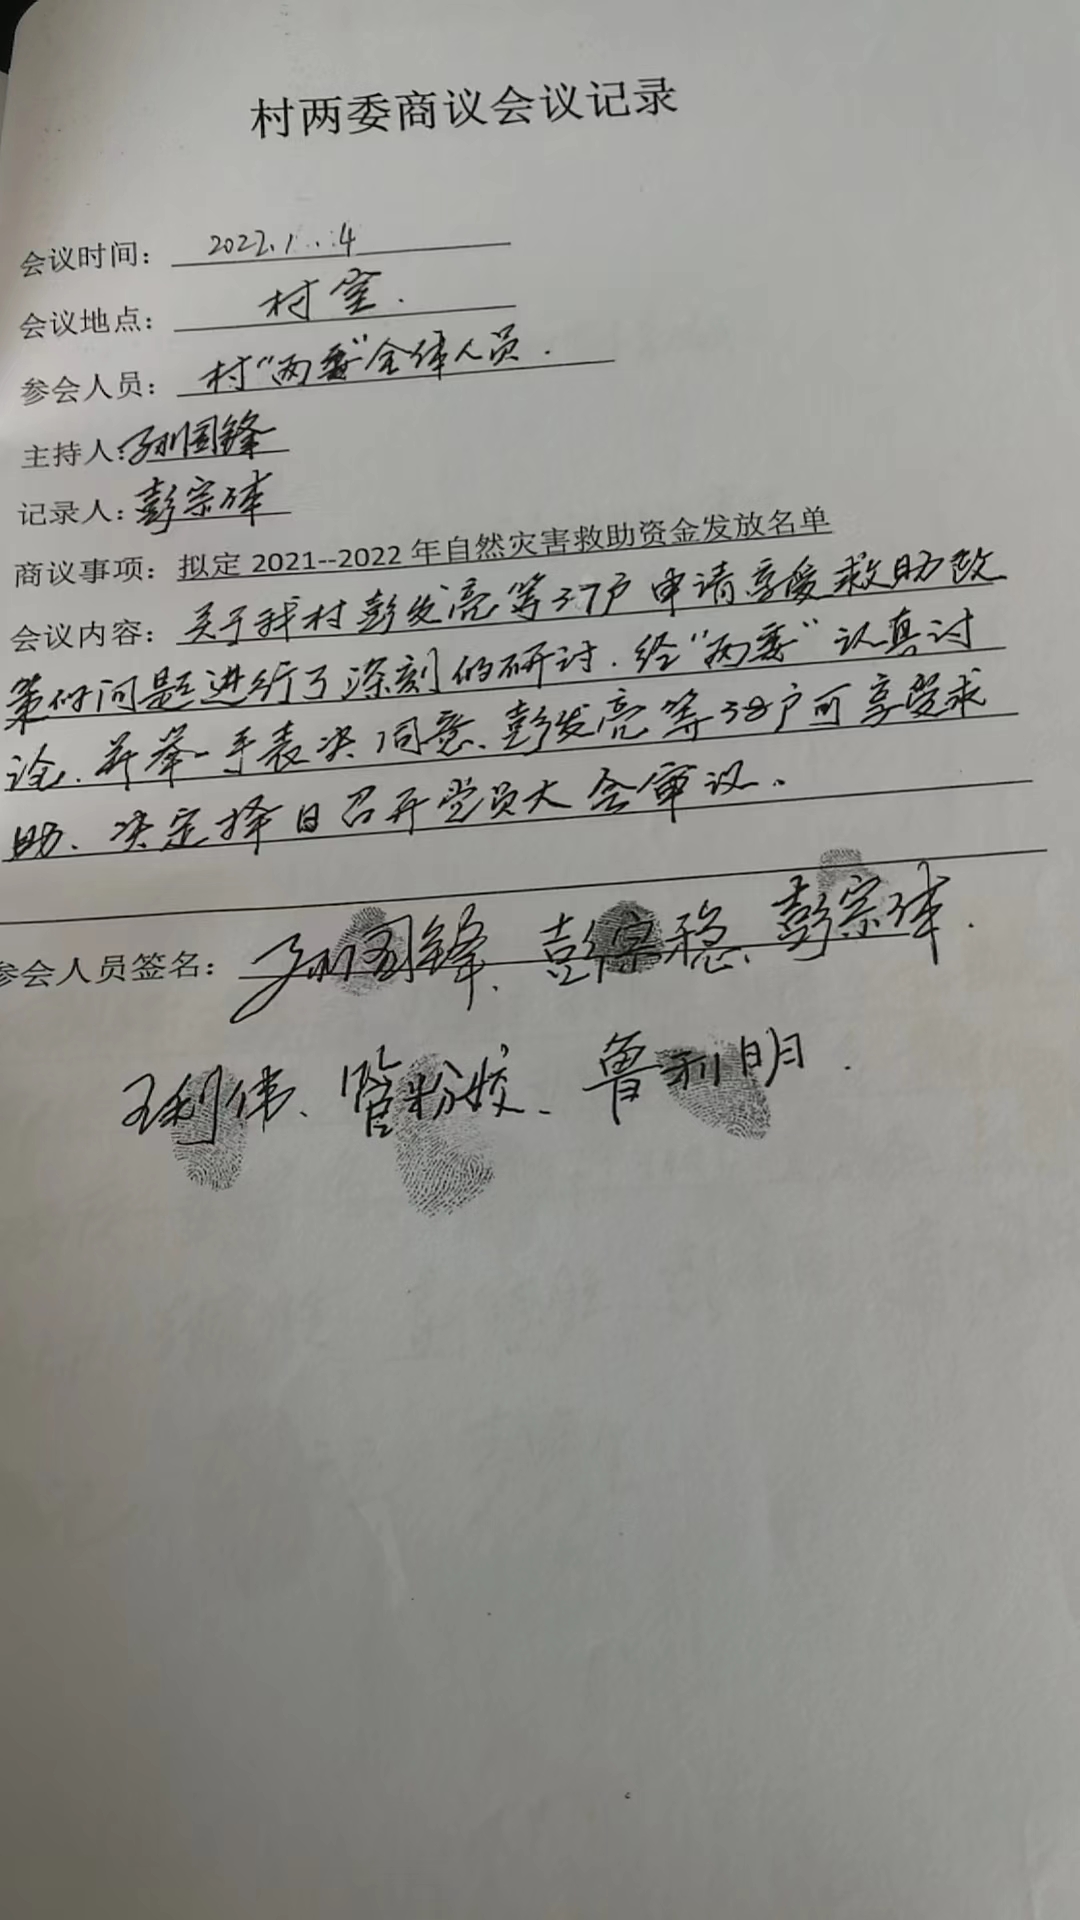 村两委商议会议记录
会议时间：2022.1..4
会议地点：村室.
参会人员：村“两委”全体人员.
主持人：孙国锋
记录人：彭宗体
商议事项：拟定2021--2022年自然灾害救助资金发放名单
会议内容：关于我村彭发亮等37户申请享受救助政
策的问题进行了深刻的研讨.经“两委”认真讨
论、并举手表决同意、彭发亮等38户可享受求
助、决定择日召开党员大会审议、
参会人员签名：孙国锋、彭宗稳、彭宗体.
王利伟、管粉姣、鲁利明.